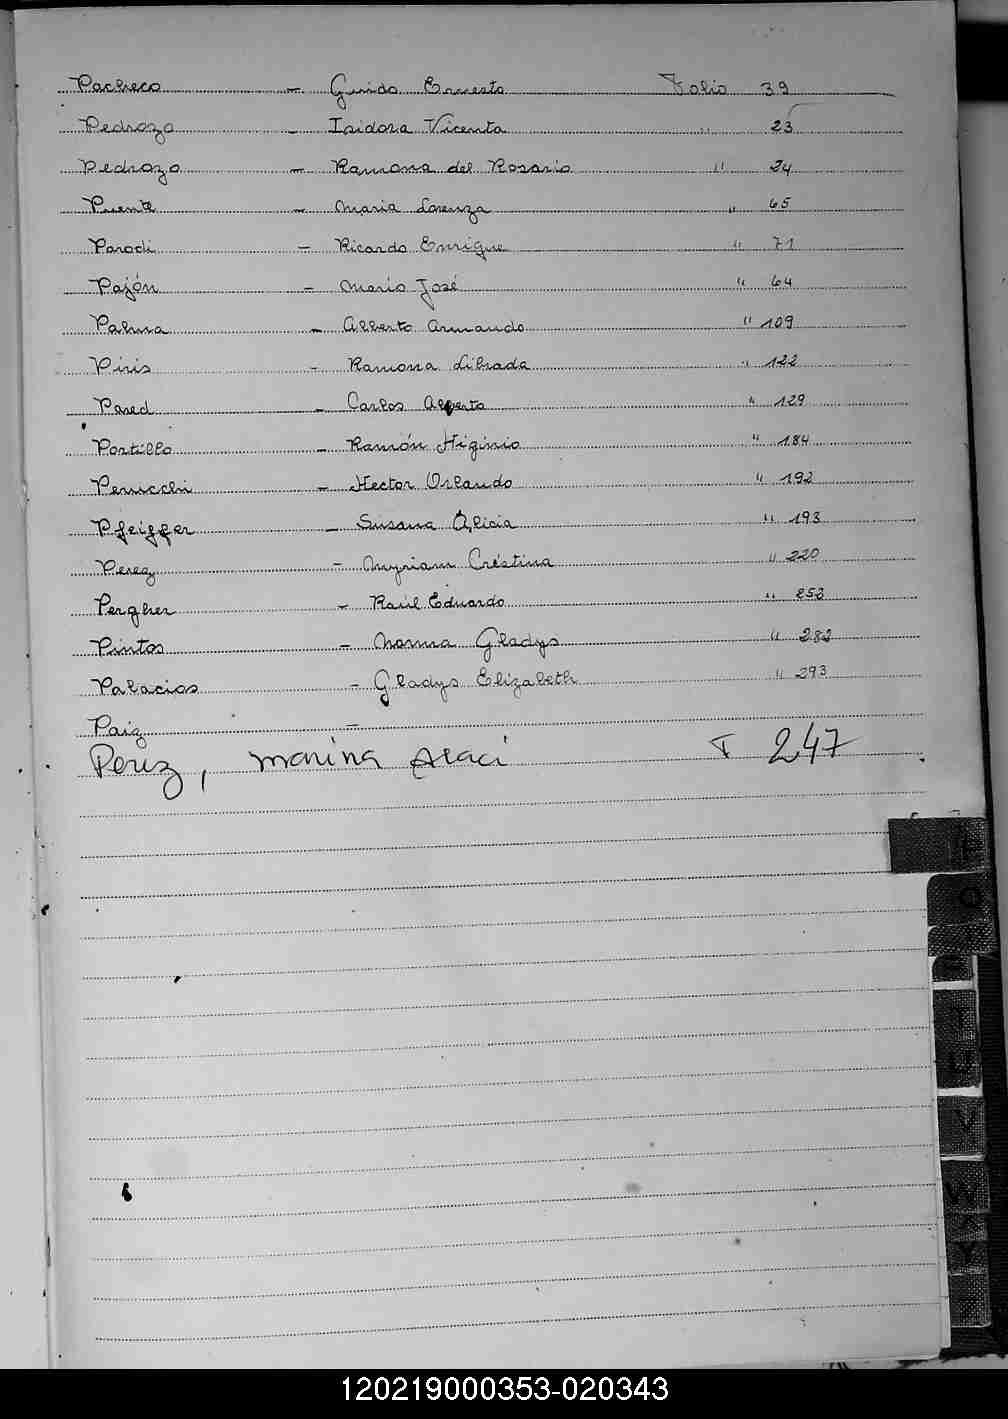 Pacheco - Guido Ernesto Folio 39
Pedrozo - Isidora Vicenta " 23
Pedrozo - Ramona del Rosario " 24
Puente - Maria Lorenza " 65
Parodi - Ricardo Enrique " 71
Pajón - Mario José " 64
Palma - Alberto Armando " 109
Piris - Ramona Librada " 122
Pared - Carlos Alberto " 129
Portillo - Ramón Higinio " 184
Perucchi - Hector Orlando " 192
Pfeiffer - Susana Alicia " 193
Perez - Myriam Cristina " 220
Pergher - Raúl Eduardo " 252
Pintos - Norma Gladys " 282
Palacios - Gladys Elizabeth " 293
Paiz -
Perez, Marina Araci F 247
Q
T
U
V
Y
120219000353-020343